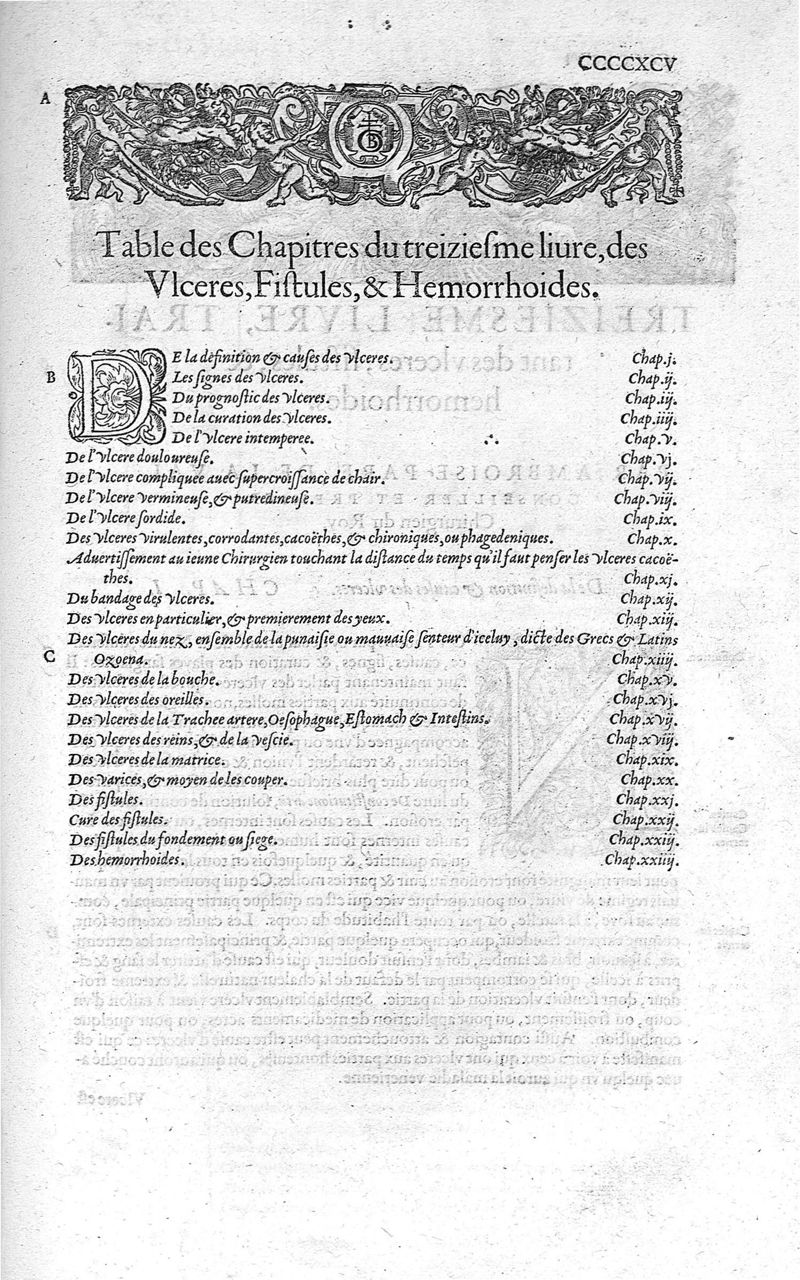 CCCCXCV
A
Table des Chapitres du treizieſme liure, des
Vlceres, Fiſtules, & Hemorrhoides.
DE la définition & cauſes des vlceres. Chap.j.
B
Les ſignes des vlceres. Chap.ij.
Du prognoſtic des vlceres. Chap.iij.
De la curation des vlceres. Chap.iiij.
De l'vlcere intemperee. Chap.v.
De l'vlcere douloureuſe. Chap.vj.
De l'vlcere compliquée auec ſupercroiſſance de chair. Chap.vij.
De l'vlcere vermineuſe, & putredineuſe. Chap.viij.
De l'vlcere ſordide. Chap.ix.
Des vlceres virulentes, corrodantes, cacoëthes, & chironiques, ou phagedeniques. Chap.x.
Aduertiſſement au ieune Chirurgien touchant la diſtance du temps qu'il faut penſer les vlceres cacoë-
thes. Chap.xj.
Du bandage des vlceres. Chap.xij.
Des vlceres en particulier, & premierement des yeux. Chap.xiij.
Des vlceres du nez, enſemble de la punaiſie ou mauuaiſe ſenteur d'iceluy, dicte des Grecs & Latins
C
Ozoena. Chap.xiiij.
Des vlceres de la bouche. Chap.xv.
Des vlceres des oreilles. Chap.xvj.
Des vlceres de la Trachee artere, Oeſophague, Eſtomach & Inteſtins. Chap.xvij.
Des vlceres des reins, & de la veſcie. Chap.xviij.
Des vlceres de la matrice. Chap.xix.
Des varices, & moyen de les couper. Chap.xx.
Des fiſtules. Chap.xxj.
Cure des fiſtules. Chap.xxij.
Des fiſtules du fondement ou ſiege. Chap.xxiij.
Des hemorrhoides. Chap.xxiiij.